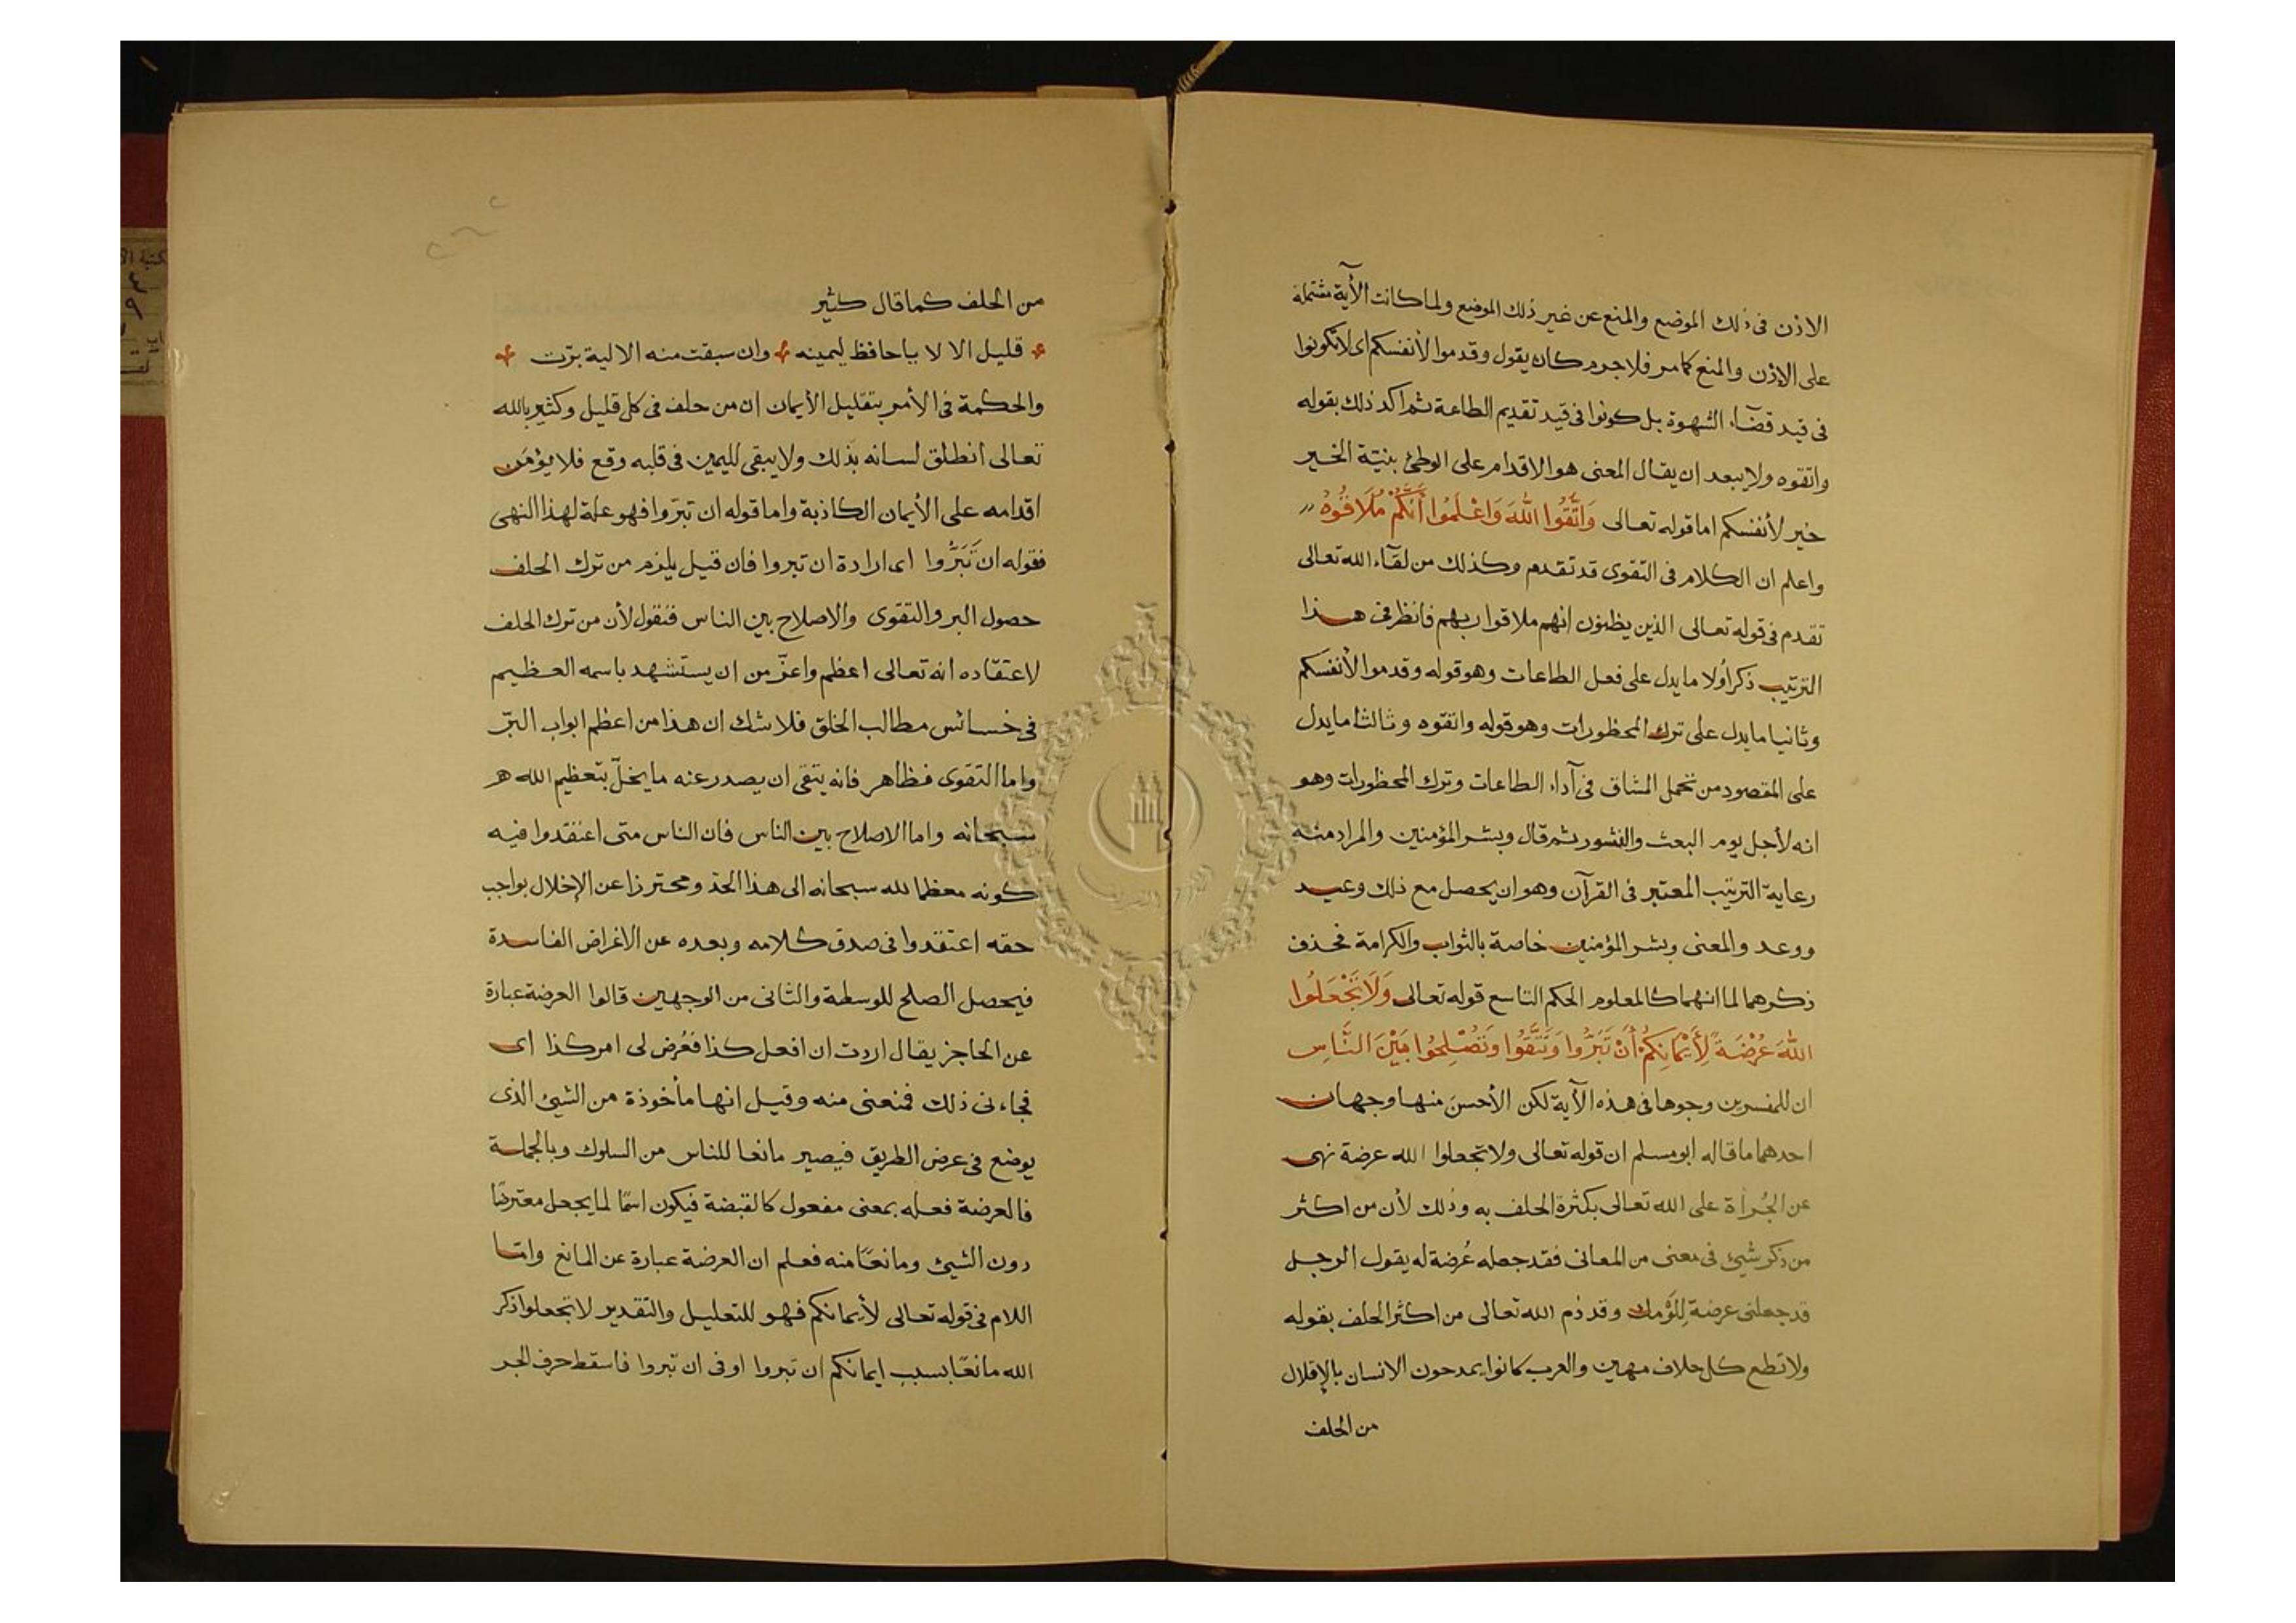 الاذن فى ذلك الموضع والمنع عن غير ذلك الموضع ولما كانت الآية مشتملة
على الإذن والمنع كما مر فلا جرم كان يقول وقدموا لأنفسكم اى لا تكونوا
فى قيد قضآء الشهوة بل كونوا فى قيد تقديم الطاعة ثم اكد ذلك بقوله
واتقوه ولا يبعد ان يقال المعنى هو الاقدام على الوطئ بنيّة الخير
خير لأنفسكم اما قوله تعالى وَاتَّقُوا اللهَ وَاعْلَمُوا أَنَّكُمْ مُلَاقُوهُ
واعلم ان الكلام فى التقوى قد تقدم وكذلك من لقآء الله تعالى
تقدم فى قوله تعالى الذين يظنون انهم ملاقوا ربهم فانظر فى هذا
الترتيب ذكر أولا ما يدل على فعل الطاعات وهو قوله وقدموا لأنفسكم
وثانيا ما يدل على ترك المحظورات وهو قوله واتقوه وثالثا ما يدل
على المقصود من تحمل المشاق فى آداء الطاعات وترك المحظورات وهو
انه لأجل يوم البعث والنشور ثم قال وبشر المؤمنين والمراد منه
رعاية الترتيب المعتبر فى القرآن وهو ان يحصل مع ذلك وعيد
ووعد والمعنى وبشر المؤمنين خاصة بالثواب والكرامة فحذف
ذكرهما لما انهما كالمعلوم الحكم التاسع قوله تعالى وَلَا تَجْعَلُوا
اللهَ عُرْضَةً لِأَيْمَانِكُمْ أَنْ تَبَرُّوا وَتَتَّقُوا وَتُصْلِحُوا بَيْنَ النَّاسِ
ان للمفسرين وجوها فى هذه الآية لكن الأحسن منها وجهان
احدهما ما قاله ابو مسلم ان قوله تعالى ولا تجعلوا الله عرضة نهى
عن الجُرأة على الله تعالى بكثرة الحلف به وذلك لأن من اكثر
من ذكر شيئ فى معنى من المعانى فقد جعله عُرضة له يقول الرجل
قد جعلتى عرضة لِلَؤْمك وقد ذم الله تعالى من اكثر الحلف بقوله
ولا تطع كل حلاف مهين والعرب كانوا يمدحون الانسان بالإقلال
من الحلف
من الحلف كما قال كثير
قليل الا لا يا حافظ ليمينه وان سبقت منه الالية برّت
والحكمة فى الأمر بتقليل الأيمان ان من حلف فى كل قليل وكثير بالله
تعالى انطلق لسانه بذلك ولا يبقى لليمين فى قلبه وقع فلا يؤمَن
اقدامه على الأيمان الكاذبة واما قوله ان تبرّوا فهو علة لهذا النهى
فقوله ان تَبَرُّوا اى ارادة ان تبروا فان قيل يلزم من ترك الحلف
حصول البر والتقوى والاصلاح بين الناس فنقول لأن من ترك الحلف
لاعتقاده انه تعالى اعظم واعزّ من ان يستشهد باسمه العظيم
فى خسائس مطالب الخلق فلا شك ان هذا من اعظم ابواب البرّ
واما التقوى فظاهر فانه يتقى ان يصدر عنه ما يخلّ بتعظيم الله هر
سبحانه واما الاصلاح بين الناس فان الناس متى اعتقدوا فيه
كونه معظما لله سبحانه الى هذا الحدّ ومحترزا عن الإخلال بواجب
حقه اعتقدوا فى صدق كلامه وبعده عن الاغراض الفاسدة
فيحصل الصلح للوسطة والثانى من الوجهين قالوا العرضة عبارة
عن الحاجز يقال اردت ان افعل كذا فعُرض لى امر كذا اى
فجاءنى ذلك فمنعنى منه وقيل انها مأخوذة من الشيئ الذى
يوضع فى عرض الطريق فيصير مانعا للناس من السلوك وبالجملة
فالعرضة فعله بمعنى مفعول كالقبضة فيكون اسمًا لما يجعل معترضًا
دون الشيئ ومانعًا منه فعلم ان العرضة عبارة عن المانع وامّا
اللام فى قوله تعالى لأيمانكم فهو للتعليل والتقدير لا تجعلوا ذكر
الله مانعًا بسبب ايمانكم ان تبروا او فى ان تبروا فاسقط حرف الجر